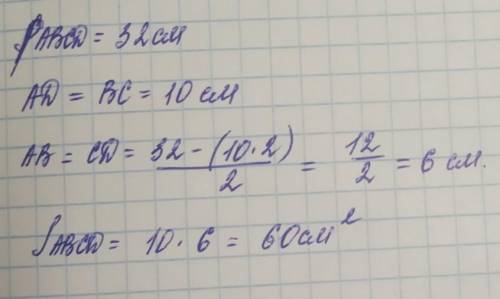 P ABCD = 32 см
AD = BC = 10 см
AB = CD = \frac{32 - (10 \cdot 2)}{2} = \frac{12}{2} = 6 см.
S ABCD = 10 · 6 = 60 см²